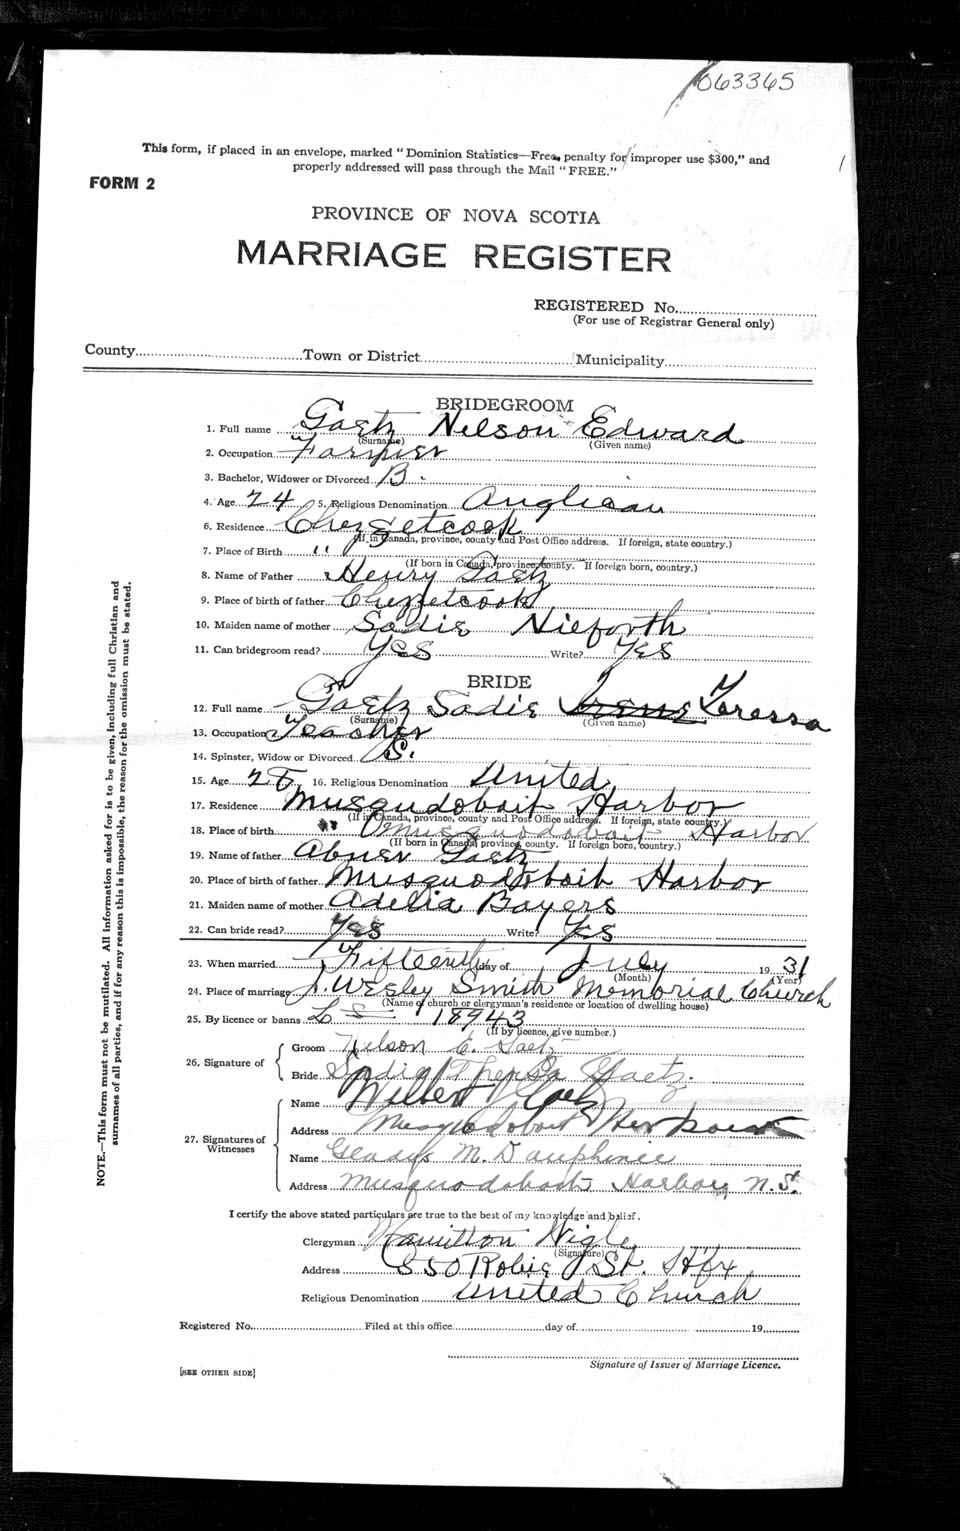 063365
This form, if placed in an envelope, marked "Dominion Statistics—Free, penalty for improper use $300," and
properly addressed will pass through the Mail "FREE."
FORM 2
PROVINCE OF NOVA SCOTIA
MARRIAGE REGISTER
REGISTERED No.
(For use of Registrar General only)
County Town or District Municipality
BRIDEGROOM
1. Full name Gaetz Nelson Edward
(Surname) (Given name)
2. Occupation Farmer
3. Bachelor, Widower or Divorced B.
4. Age 24 5. Religious Denomination Anglican
6. Residence Chezzetcook
(If in Canada, province, county and Post Office address. If foreign, state country.)
7. Place of Birth " "
(If born in Canada, province, county. If foreign born, country.)
8. Name of Father Henry Gaetz
9. Place of birth of father Chezzetcook
10. Maiden name of mother Sadie Nieforth
11. Can bridegroom read? Yes Write? Yes
BRIDE
12. Full name Gaetz Sadie Irene Teressa
(Surname) (Given name)
13. Occupation Teacher
14. Spinster, Widow or Divorced S.
15. Age 16. Religious Denomination United
17. Residence Musqudoboit Harbor
(If in Canada, province, county and Post Office address. If foreign, state country.)
18. Place of birth Musquodoboit Harbor
(If born in Canada, province, county. If foreign born, country.)
19. Name of father Abner Gaetz
20. Place of birth of father Musquodoboit Harbor
21. Maiden name of mother Adelia Bayers
22. Can bride read? Yes Write? Yes
23. When married Fifteenth day of July 1931
(Month) (Year)
24. Place of marriage J. Wesley Smith Memorial Church
(Name of church or clergyman's residence or location of dwelling house)
25. By licence or banns L 18943
(If by licence, give number.)
26. Signature of Groom Nelson E. Gaetz
Bride Sadie Theresa Gaetz.
27. Signatures of Witnesses
Name Wilbert Gaetz
Address Musquodoboit Harbour
Name Gladys M. Dauphinee
Address Musquodoboit Harbour, N.S.
I certify the above stated particulars are true to the best of my knowledge and belief.
Clergyman Hamilton Wigle
(Signature)
Address 850 Robie St. Hfx
Religious Denomination United Church
Registered No. Filed at this office day of 19
Signature of Issuer of Marriage Licence.
[SEE OTHER SIDE]
NOTE.—This form must not be mutilated. All information asked for is to be given, including full Christian and
surnames of all parties, and if for any reason this is impossible, the reason for the omission must be stated.